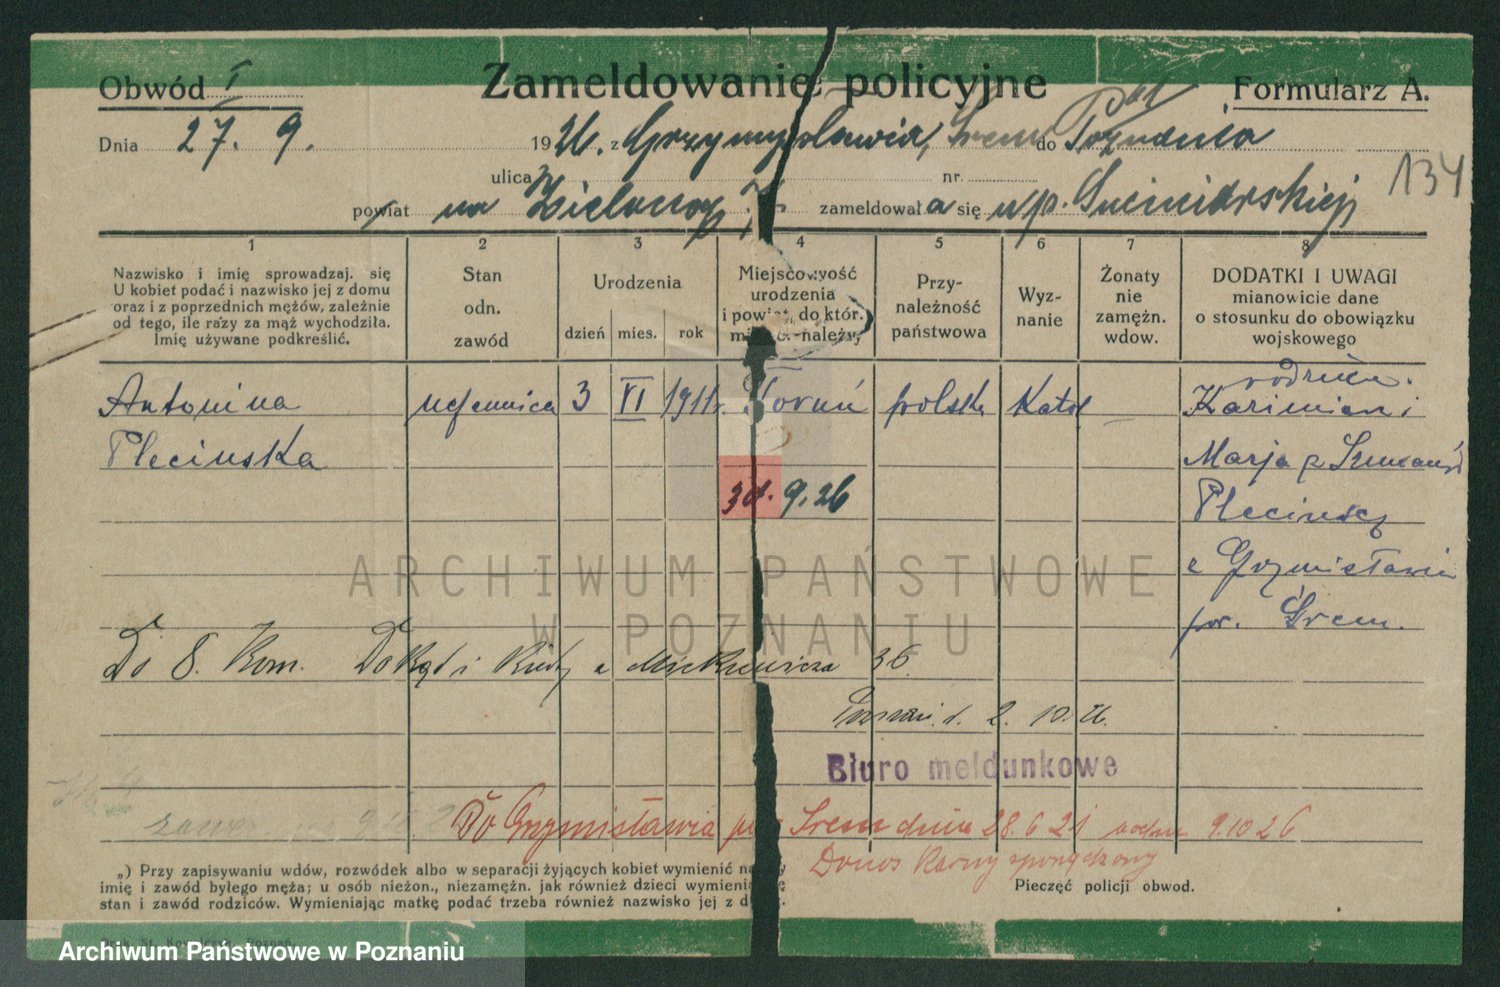 Obwód I
Zameldowanie policyjne
Formularz A.
Dnia 27. 9. 1926. z Grzymysławia, Śrem do Poznania
134
ulica nr.
powiat na Zieloną zameldowała się u p. Suciniarskiej
1 2 3 4 5 6 7 8
Nazwisko i imię sprowadzaj. się
U kobiet podać i nazwisko jej z domu
oraz i z poprzednich mężów, zależnie
od tego, ile razy za mąż wychodziła.
Imię używane podkreślić.
Stan
odn.
zawód
Urodzenia
dzień mies. rok
Miejscowość
urodzenia
i powiat, do któr.
należy
Przy-
należność
państwowa
Wyz-
nanie
Żonaty
nie
zamężn.
wdow.
DODATKI I UWAGI
mianowicie dane
o stosunku do obowiązku
wojskowego
Antonina uczennica 3 VI 1911 Toruń polska Katol
Plecinska
30. 9. 26
Kazimierz i
Marja z
Plecinscy
z Grzymisławia
pow. Śrem.
Do 8. Kom. Dokąd i kiedy Mickiewicza 36
Poznań d. 2. 10. 26.
Biuro meldunkowe
Do Grzymisławia Śrem dnia 28. 6 21 9. 10 26
Donos karny sporządzony
„) Przy zapisywaniu wdów, rozwódek albo w separacji żyjących kobiet wymienić
imię i zawód byłego męża; u osób nieżon., niezamężn. jak również dzieci
stan i zawód rodziców. Wymieniając matkę podać trzeba również nazwisko jej z
Pieczęć policji obwod.
ARCHIWUM PAŃSTWOWE
W POZNANIU
Archiwum Państwowe w Poznaniu